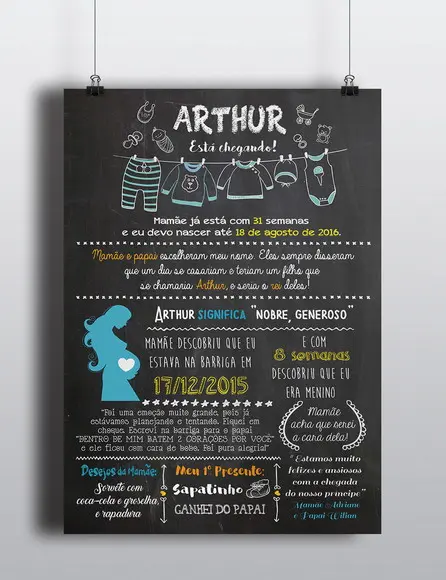 ARTHUR
Está chegando!
Mamãe já está com 31 semanas
e eu devo nascer até 18 de agosto de 2016.
Mamãe e papai escolheram meu nome. Eles sempre disseram
que um dia se casariam e teriam um filho que
se chamaria Arthur, e seria o rei deles!
ARTHUR SIGNIFICA "NOBRE, GENEROSO"
MAMÃE DESCOBRIU QUE EU
ESTAVA NA BARRIGA EM
17/12/2015
E COM
8 semanas
DESCOBRIU QUE EU
ERA MENINO
"Foi uma emoção muito grande, pois já
estávamos planejando e tentando. Fiquei em
choque. Escrevi na barriga para o papai
"DENTRO DE MIM BATEM 2 CORAÇÕES POR VOCÊ"
e ele ficou com cara de bobo. Foi pura alegria!"
Mamãe
acha que serei
a cara dela!
Desejos da Mamãe:
Sorvete com
coca-cola e groselha,
e rapadura
Meu 1º Presente:
Sapatinho
GANHEI DO PAPAI
"Estamos muito
felizes e ansiosos
com a chegada
do nosso príncipe"
Mamãe Adriane
e Papai Wilian